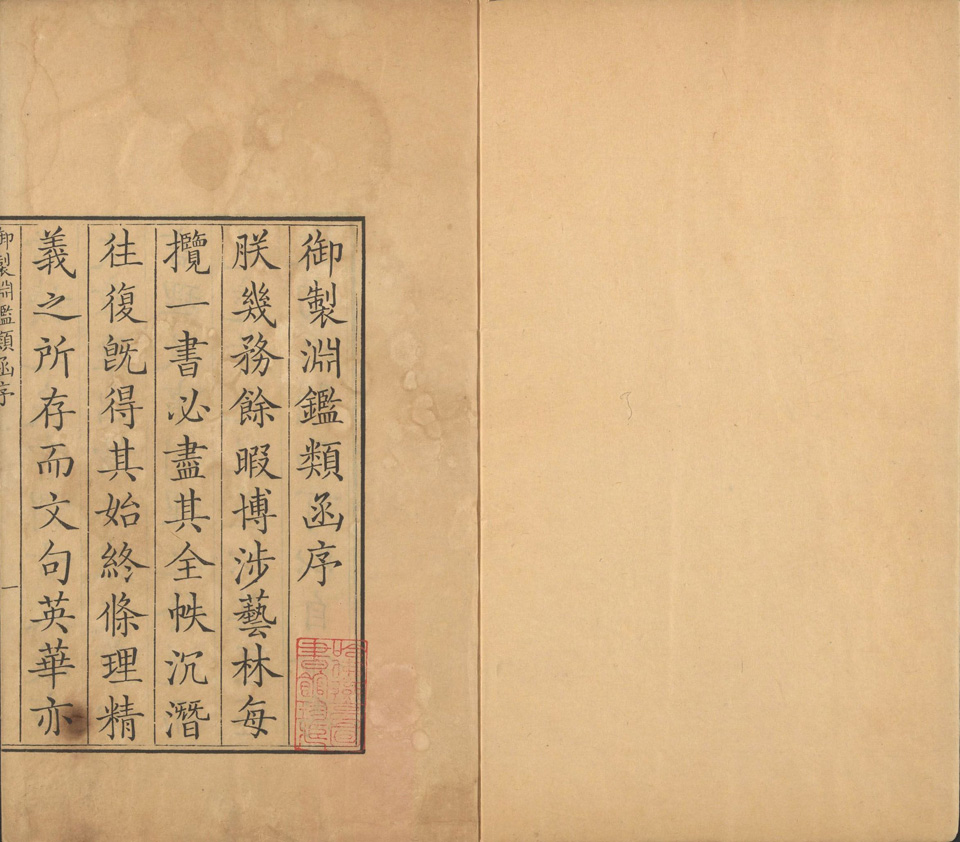 御製淵鑑類函序
朕幾務餘暇博涉藝林每
攬一書必盡其全帙沉潛
往復旣得其始終條理精
義之所存而文句英華亦
御製淵鑑類函序 一